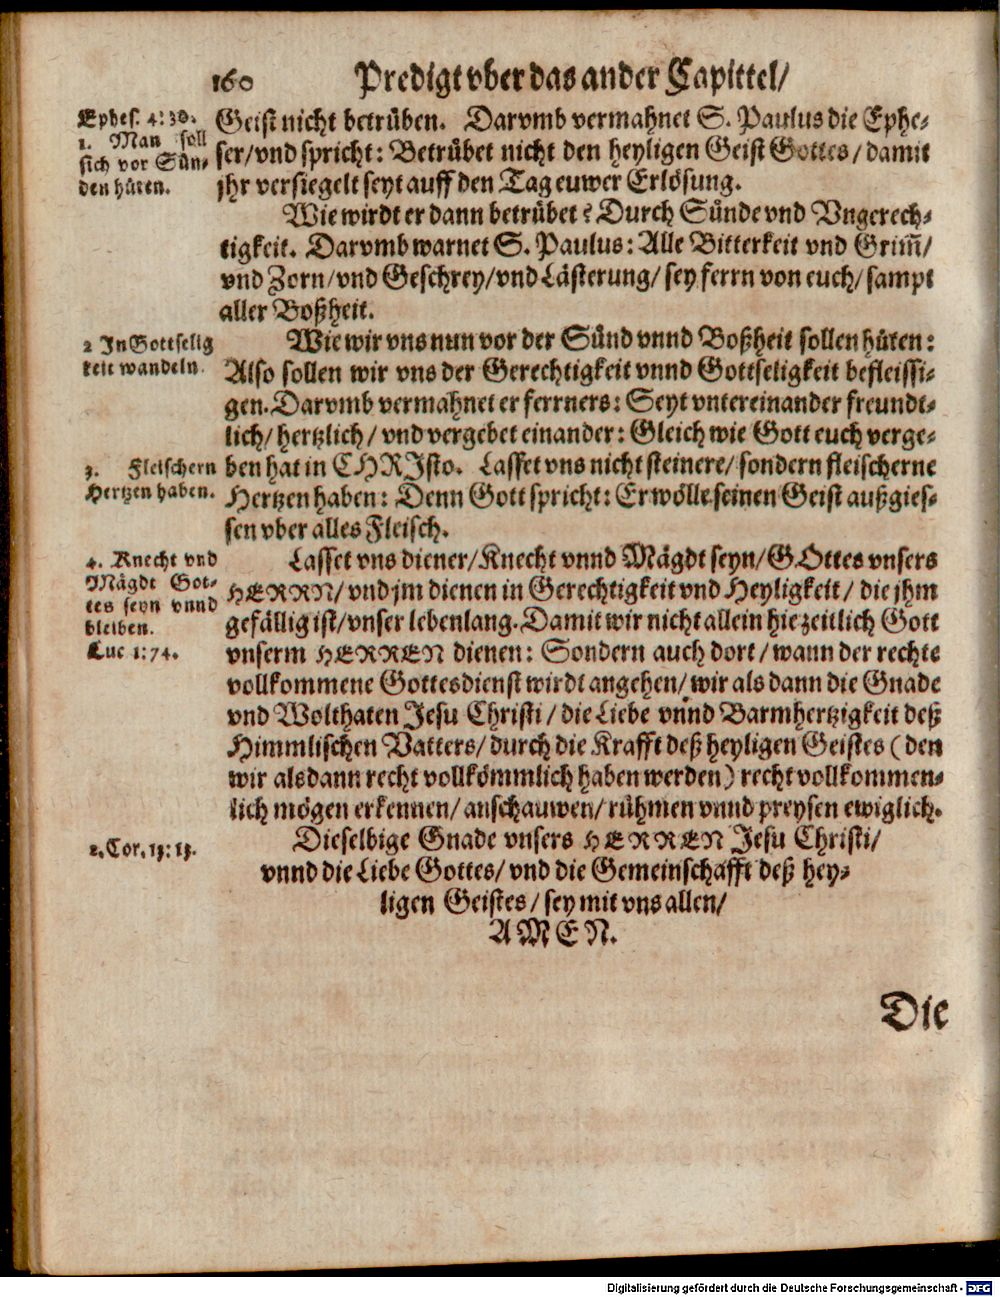 160 Predigt vber das ander Capittel/
Ephes. 4:30.
1. Man soll
sich vor Sün-
den hüten.
Geist nicht betrüben. Darvmb vermahnet S. Paulus die Ephe-
ser/vnd spricht: Betrübet nicht den heyligen Geist Gottes/ damit
jhr versiegelt seyt auff den Tag euwer Erlösung.
Wie wirdt er dann betrübet? Durch Sünde vnd Vngerech-
tigkeit. Darvmb warnet S. Paulus: Alle Bitterkeit vnd Grim̃/
vnd Zorn/vnd Geschrey/vnd Lästerung/ sey ferrn von euch/ sampt
aller Boßheit.
2 In Gottselig
keit wandeln.
Wie wir vns nun vor der Sünd vnnd Boßheit sollen hüten:
Also sollen wir vns der Gerechtigkeit vnnd Gottseligkeit befleissi-
gen. Darvmb vermahnet er ferrners: Seyt vntereinander freundt-
lich/ hertzlich/ vnd vergebet einander: Gleich wie Gott euch verge-
3. Fleischern
Hertzen haben.
ben hat in CHRJsto. Lasset vns nicht steinere/ sondern fleischerne
Hertzen haben: Denn Gott spricht: Er wölle seinen Geist außgies-
sen vber alles Fleisch.
4. Knecht vnd
Mägdt Got-
tes seyn vnnd
bleiben.
Luc 1:74.
Lasset vns diener/Knecht vnnd Mägdt seyn/GOttes vnsers
HERRN/ vnd jm dienen in Gerechtigkeit vnd Heyligkeit/ die jhm
gefällig ist/vnser lebenlang. Damit wir nicht allein hie zeitlich Gott
vnserm HERREN dienen: Sondern auch dort/ wann der rechte
vollkommene Gottesdienst wirdt angehen/ wir als dann die Gnade
vnd Wolthaten Jesu Christi/ die Liebe vnnd Barmhertzigkeit deß
Himmlischen Vatters/ durch die Krafft deß heyligen Geistes (den
wir alsdann recht vollkömmlich haben werden) recht vollkommen-
lich mögen erkennen/ anschauwen/ rühmen vnnd preysen ewiglich.
2. Cor. 13:13.
Dieselbige Gnade vnsers HERREN Jesu Christi/
vnnd die Liebe Gottes/ vnd die Gemeinschafft deß hey-
ligen Geistes/ sey mit vns allen/
AMEN.
Die
Digitalisierung gefördert durch die Deutsche Forschungsgemeinschaft - DFG